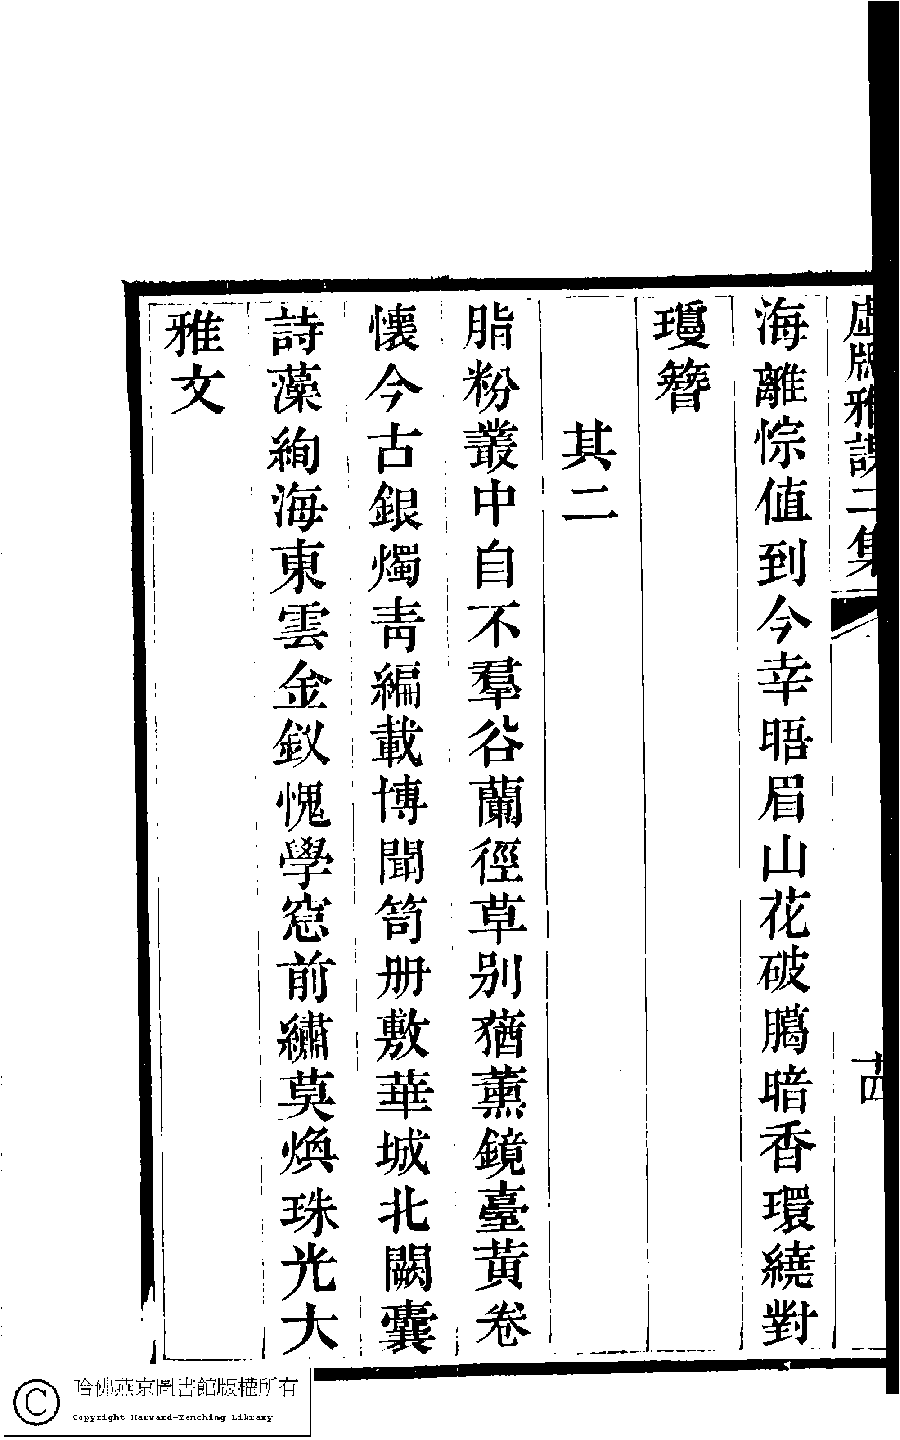 虛牕雅課二集 十四
海離悰值到今幸晤眉山花破臈暗香環繞對
瓊簪
其二
脂粉叢中自不羣谷蘭徑草别猶薰鏡臺黃卷
懷今古銀燭靑編載博聞笥册敷華城北闕囊
詩藻絢海東雲金釵愧學窓前繡莫煥珠光大
雅文
哈佛燕京圖書館版權所有
Copyright Harvard-Yenching Library